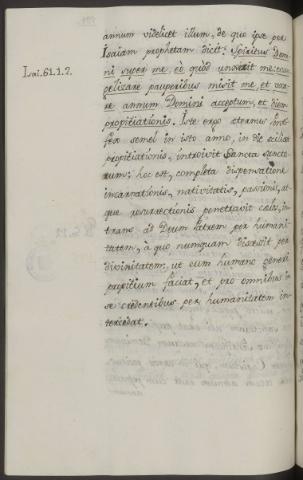 annum videlicet illum, de quo ipse per
Isaiam prophetam dicit: Spiritus Domi-
Isai. 61.1.2.
ni super me, eò quòd unxerit me: evan-
gelizare pauperibus misit me, et voca-
re annum Domini acceptum, et diem
propitiationis. Iste ergo æternus Ponti-
fex semel in isto anno, in die scilicet
propitiationis, introivit Sancta Sancto-
rum; hoc est, completa dispensatione
incarnationis, nativitatis, passionis, at-
que resurrectionis penetravit cœlos, in-
trans ad Deum Patrem per humani-
tatem, à quo numquam discessit per
divinitatem: ut eum humano generi
propitium faciat, et pro omnibus in
se credentibus per humanitatem in-
tercedat.